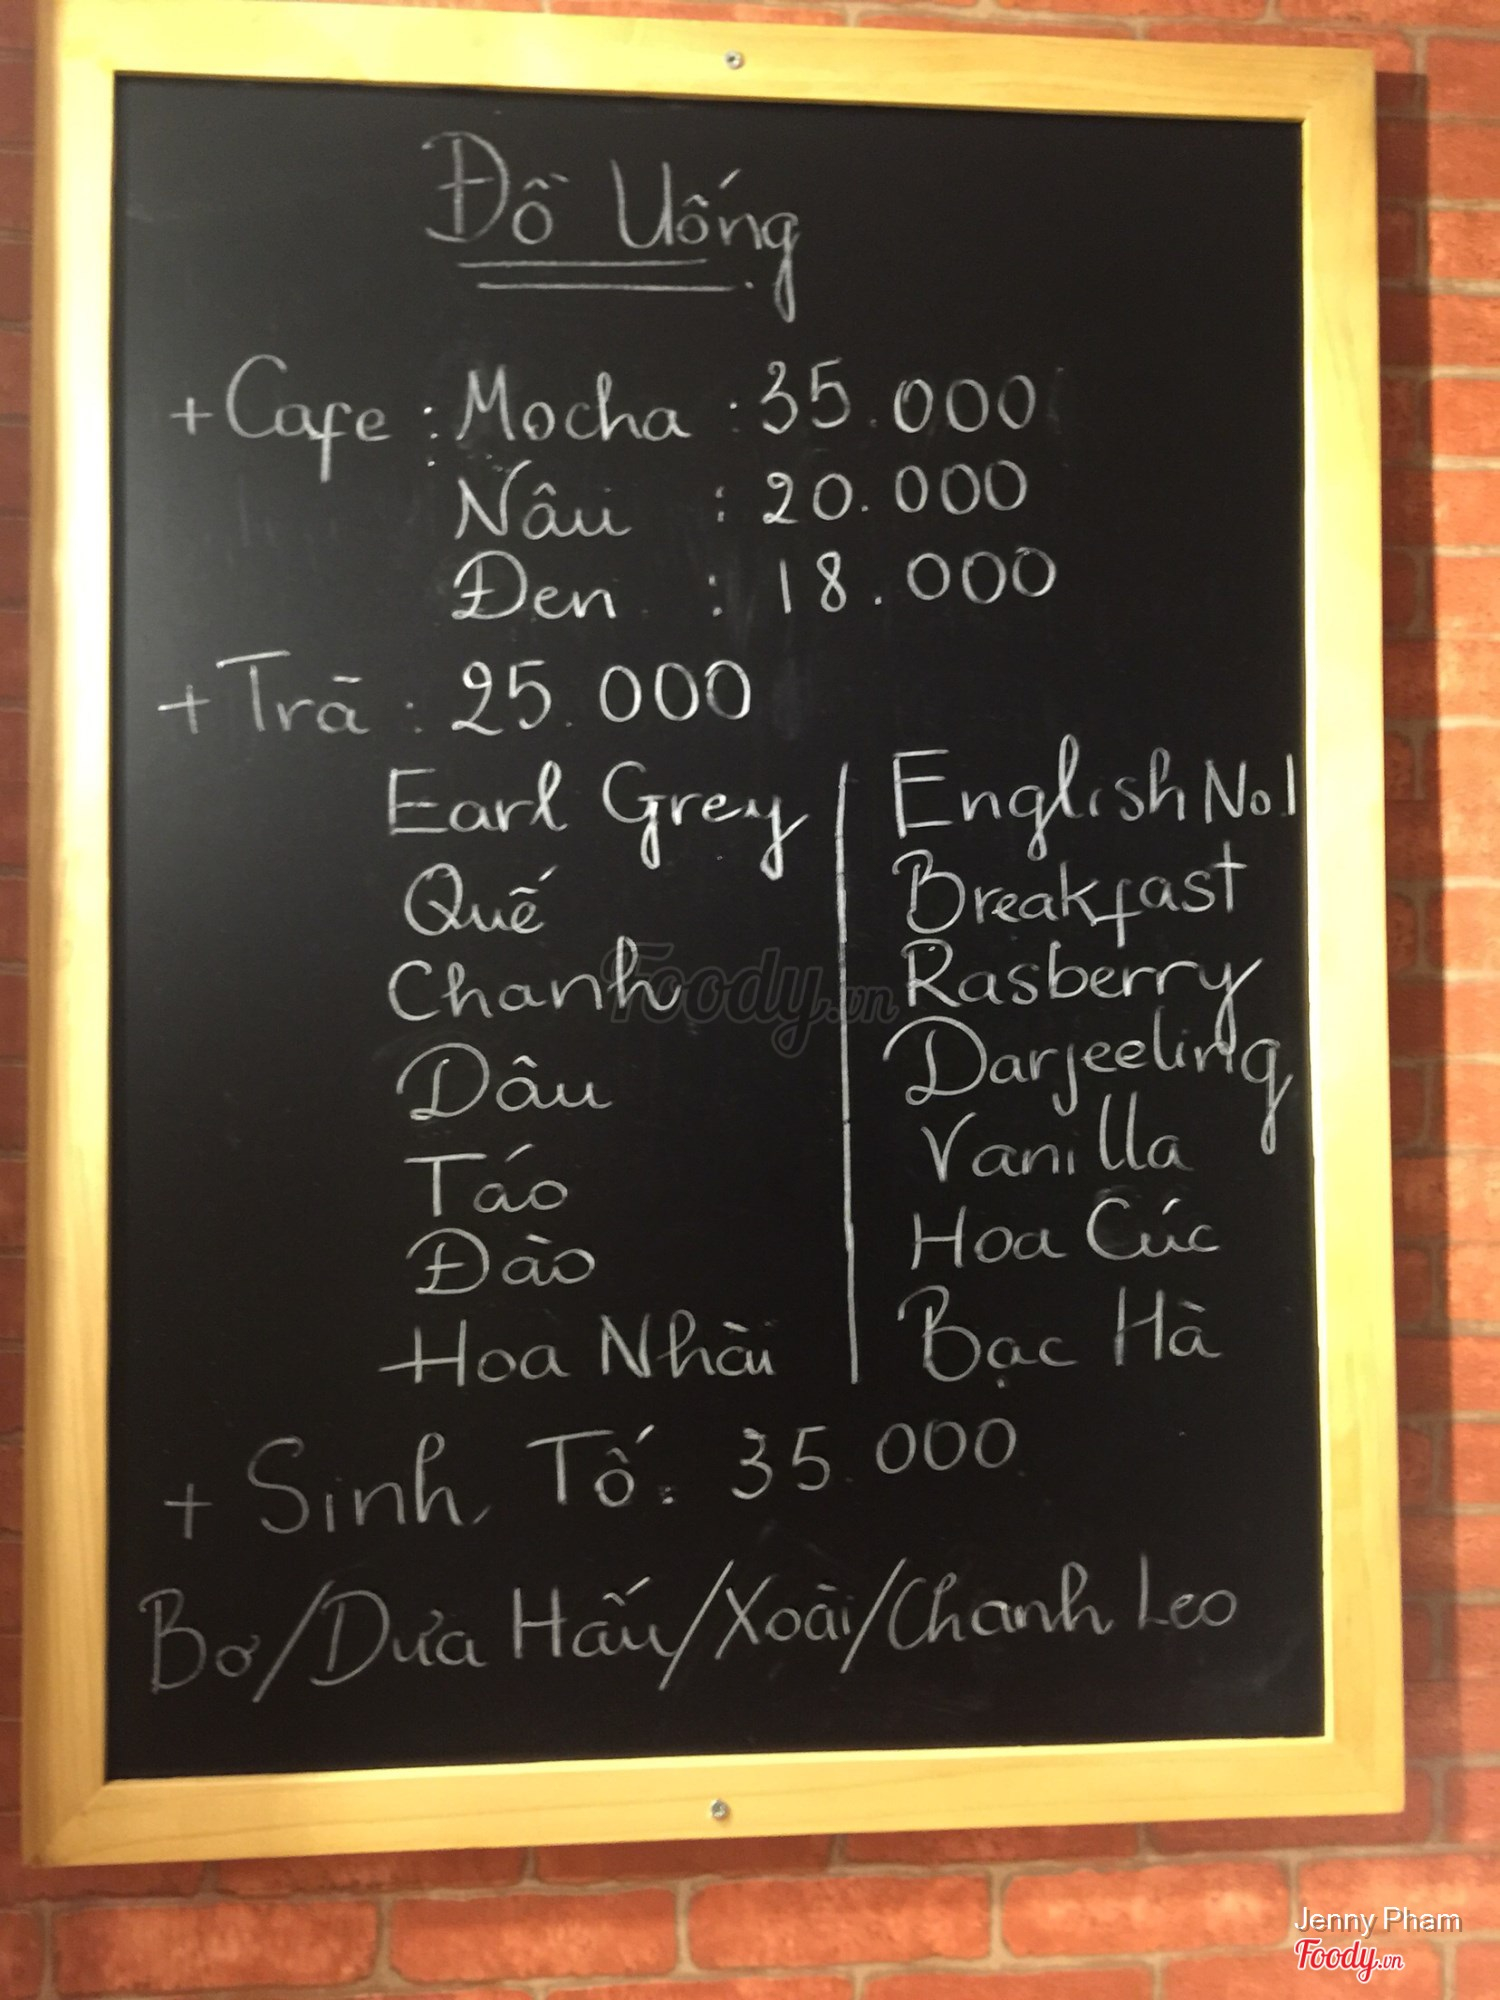 Đồ Uống
+ Cafe : Mocha : 35.000
Nâu : 20.000
Đen : 18.000
+ Trà : 25.000
Earl Grey | English No.1
Quế | Breakfast
Chanh | Rasberry
Dâu | Darjeeling
Táo | Vanilla
Đào | Hoa Cúc
Hoa Nhài | Bạc Hà
+ Sinh Tố : 35.000
Bơ/Dưa Hấu/Xoài/Chanh Leo
Foody.vn
Jenny Pham
Foody.vn